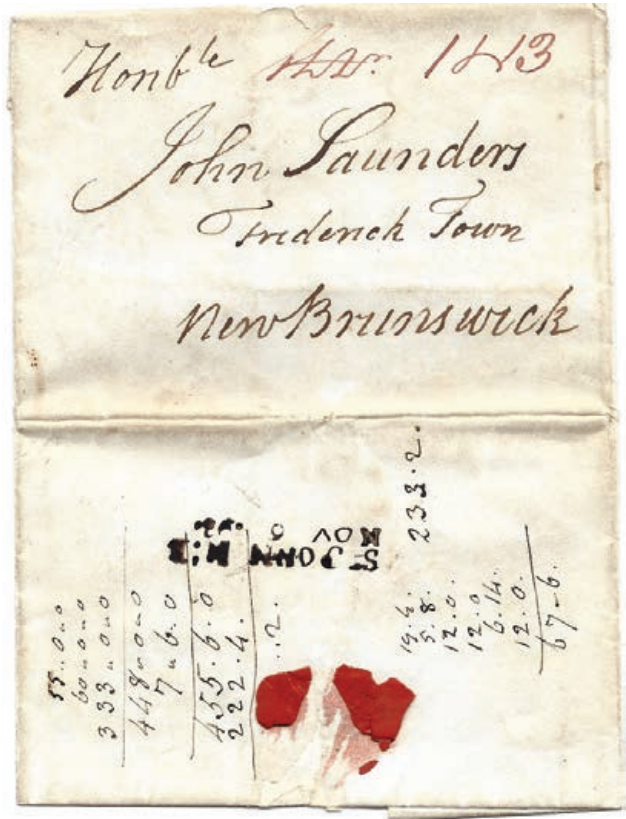 Honble 1813
John Saunders
Frederick Town
New Brunswick
St JOHN N:B
NOV 6
55..0..0
60..0..0
333..0..0
448..0..0
7..6..0
455.6.0
222.4.
..2.
233.2.
19.4.
5.8.
12.0.
12.0
6.14.
12.0.
67-6.